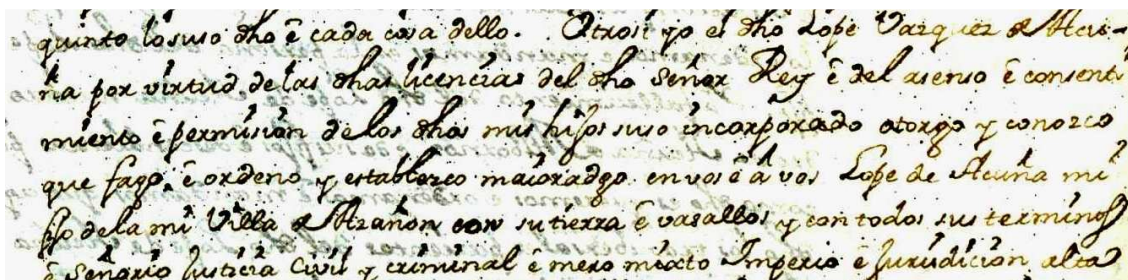 quinto lo suso dho é cada cosa dello. Otrosi yo el dho Lope Vazquez de Acu-
ña por virtud de las dhas licencias del dho Señor Rey é del asenso é consenti
miento é permision de los dhos mis hijos suso incorporado otorgo y conozco
que fago, é ordeno y establezco maioradgo en vos é á vos Lope de Acuña mi
fijo de la mi Villa de Azañon con su tierra é vasallos y con todos sus terminos
é Señorio Justicia Civil y criminal é mero mixto Imperio é Jurisdicion alta